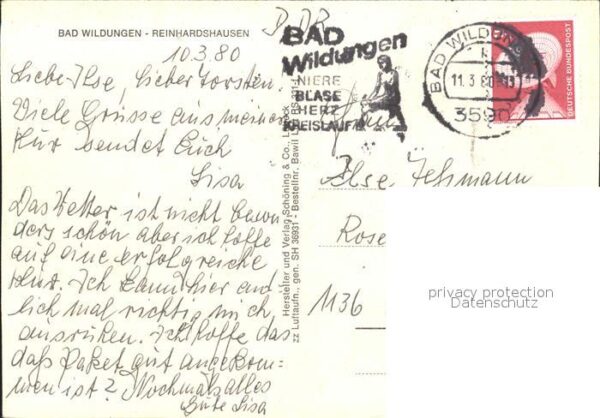 BAD WILDUNGEN - REINHARDSHAUSEN
DDR
10.3.80
Liebe Ilse, lieber Torsten.
Viele Grüsse aus meiner
Kur sendet Euch
Lisa
Das Wetter ist nicht beson
ders schön aber ich hoffe
auf eine erfolgreiche
Kur. Ich kann hier end
lich mal richtig mich
ausruhen. Ich hoffe das
daß Paket gut angekom=
men ist? Nochmals alles
Gute Lisa
Hersteller und Verlag Schöning & Co., Lübeck
zz Luftaufn., gen. SH 36931 - Bestellnr. Bawil
BAD
Wildungen
NIERE
BLASE
HERZ
KREISLAUF
BAD WILDUNGEN
11.3.80
3590
DEUTSCHE BUNDESPOST
Ilse
Rose
1136
privacy protection
Datenschutz